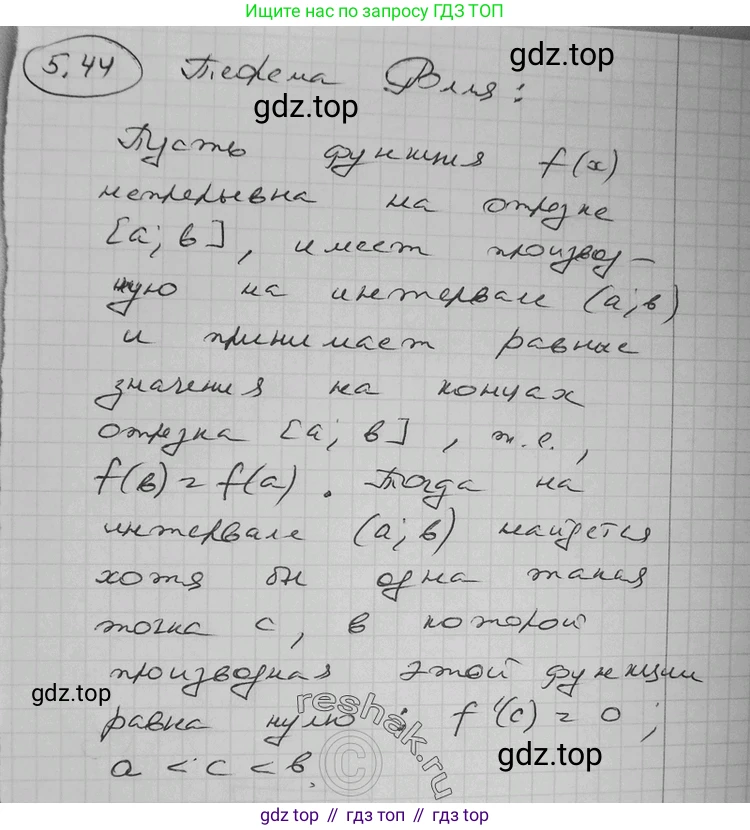 Ищите нас по запросу ГДЗ ТОП
gdz.top
5.44 Теорема Ролля:
gdz.top
Пусть функция f(x)
непрерывна на отрезке
[a; b], имеет производ-
ную на интервале (a; b)
и принимает равные
значения на концах
отрезка [a; b], т.е.,
f(b) = f(a). Тогда на
интервале (a; b) найдется
хотя бы одна такая
точка c, в которой
производная этой функции
gdz.top
равна нулю: f'(c) = 0;
reshak.ru
©
a < c < b.
gdz.top
gdz top // гдз топ // gdz.top // gdz top